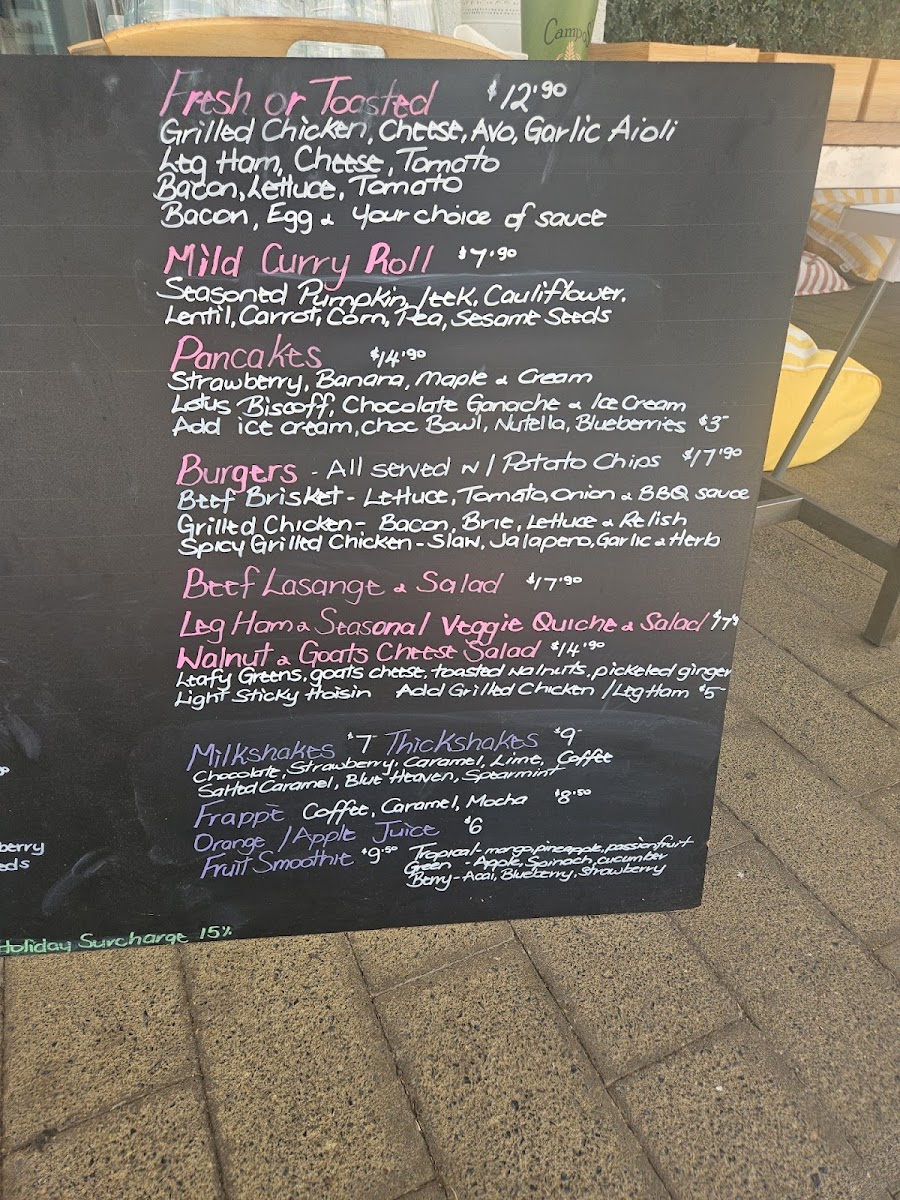 Campos
Fresh or Toasted $12.90
Grilled Chicken, Cheese, Avo, Garlic Aioli
Leg Ham, Cheese, Tomato
Bacon, Lettuce, Tomato
Bacon, Egg & your choice of sauce
Mild Curry Roll $7.90
Seasoned Pumpkin, leek, Cauliflower,
Lentil, Carrot, Corn, Pea, Sesame Seeds
Pancakes $14.90
Strawberry, Banana, Maple & Cream
Lotus Biscoff, Chocolate Ganache & Ice Cream
Add ice cream, choc Bowl, Nutella, Blueberries $3-
Burgers - All served w/ Potato Chips $17.90
Beef Brisket - Lettuce, Tomato, Onion & BBQ sauce
Grilled Chicken - Bacon, Brie, Lettuce & Relish
Spicy Grilled Chicken - Slaw, Jalapeno, Garlic & Herb
Beef Lasange & Salad $17.90
Leg Ham & Seasonal Veggie Quiche & Salad
Walnut & Goats Cheese Salad $14.90
Leafy Greens, goats cheese, toasted walnuts, pickeled ginger
Light Sticky Hoisin Add Grilled Chicken / Leg Ham $5-
Milkshakes $7- Thickshakes $9-
Chocolate, Strawberry, Caramel, Lime, Coffee
Salted Caramel, Blue Heaven, Spearmint
Frappè Coffee, Caramel, Mocha $8.50
Orange / Apple Juice $6
Fruit Smoothie $9.50 Tropical - mango, pineapple, passionfruit
Green - Apple, Spinach, cucumber
Berry - Acai, Blueberry, Strawberry
berry
eds
Holiday Surcharge 15%